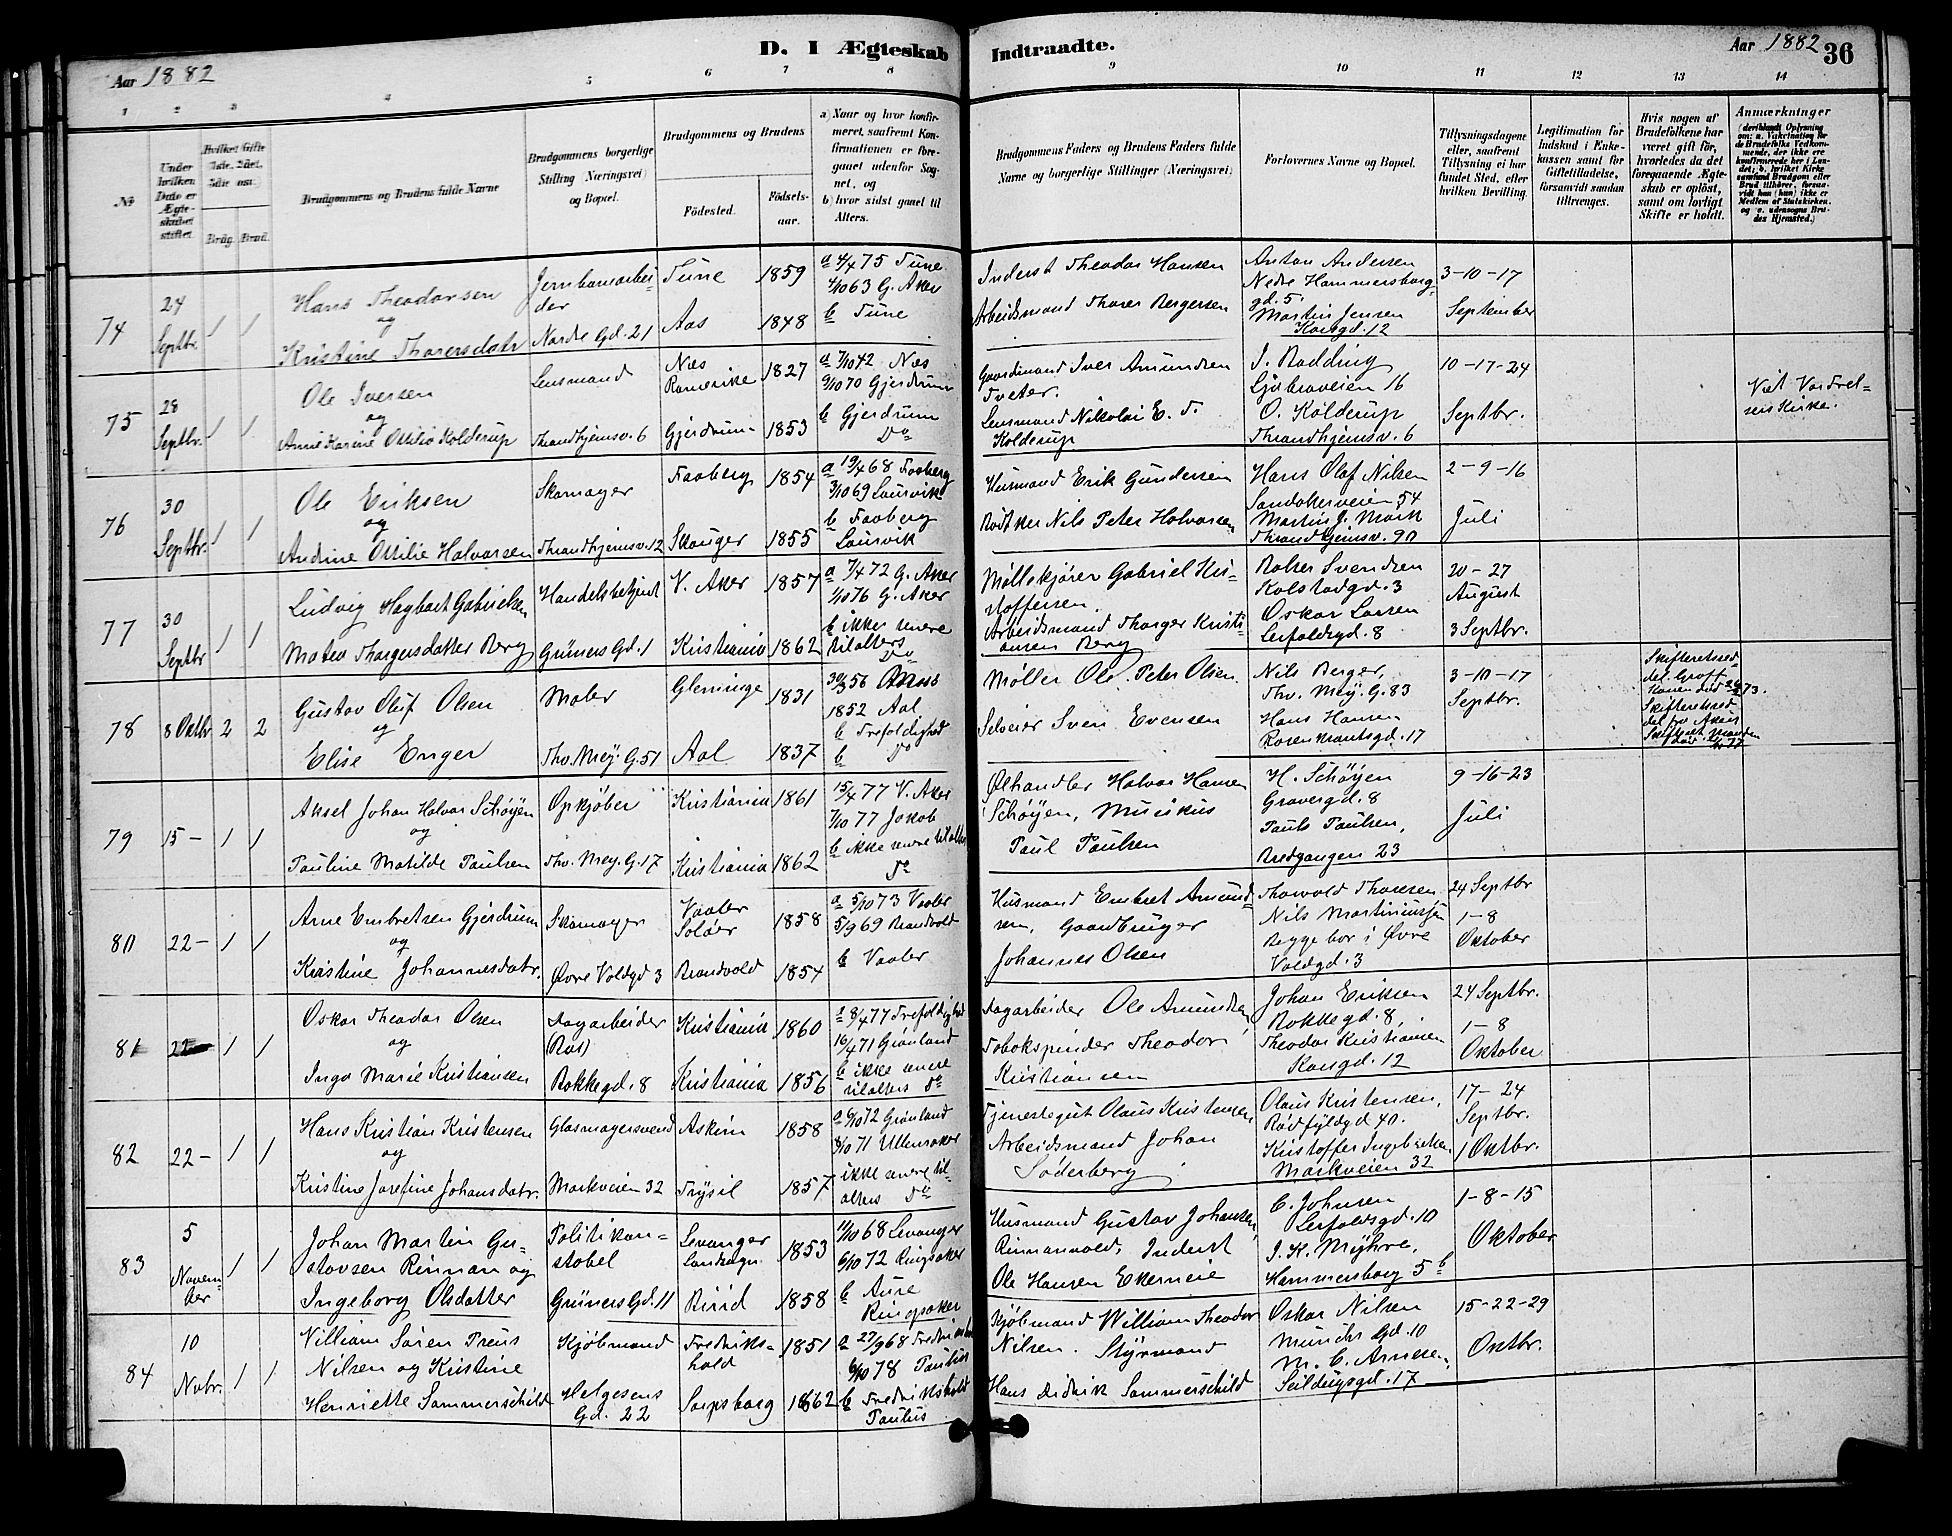 D. I Ægteskab Indtraadte.
Aar 1882
Aar 1882 36
1 2 3 4 5 6 7 8 9 10 11 12 13 14
No
Under hvilken Dato er Ægteskabet stiftet.
Hvilket Gifte
Brudg. Brud.
Brudgommens og Brudens fulde Navne
Brudgommens borgerlige Stilling (Næringsvei) og Bopæl.
Brudgommens og Brudens
Fødested.
Fødselsaar.
a) Naar og hvor konfirmeret, saafremt Konfirmationen er foregaaet udenfor Sognet, og
b) hvor sidst gaaet til Alters.
Brudgommens Faders og Brudens Faders fulde Navne og borgerlige Stillinger (Næringsvei)
Forlovernes Navne og Bopæl.
Tillysningsdagene eller, saafremt Tillysning ei har fundet Sted, efter hvilken Bevilling.
Legitimation for Indskud i Enkekassen samt for Giftetilladelse, forsaavidt saadan tiltrænges.
Hvis nogen af Brudefolkene har været gift før, hvorledes da det foregaaende Ægteskab er opløst, samt om lovligt Skifte er holdt.
Anmærkninger
74
24 Septbr.
1 1
Hans Theodorsen
og
Kristine Thorersdatr
Jernbanearbeider
Nordre Gd. 21
Tune
Aas
1859
1848
a 4/4 75 Tune
4/10 63 G. Aker
b Tune
Inderst Theodor Hansen
Arbeidsmand Thorer Bergersen
Anton Andersen
Nedre Hammersborggd. 5
Martin Jensen
Korsgd. 12
3-10-17
September
75
28 Septbr.
1 1
Ole Iversen
og
Anne Karine Ottilie Kolderup
Lensmand
Throndhjemsv. 6
Næs Romerike
Gjerdrum
1827
1853
a 7/10 42 Næs
9/10 70 Gjerdrum
b Gjerdrum
Do
Gaardmand Iver Amundsen Tveter.
Lensmand Nikolai E. F. Kolderup
J. Rødding
Ljabroveien 16
O. Kolderup
Throndhjemsv. 6
10-17-24
Septbr.
Viet Vor Frelsers Kirke.
76
30 Septbr.
1 1
Ole Eriksen
og
Andrine Ottilie Halvorsen
Skomager
Throndhjemsv. 12
Faaberg
Skouger
1854
1855
a 19/4 68 Faaberg
3/10 69 Laurvik
b Faaberg
Laurvik
Husmand Erik Gundersen
Bødker Nils Peter Halvorsen
Hans Olaf Nilsen
Sandakerveien 54
Martin J. Mørk
Throndhjemsv. 90
2-9-16
Juli
77
30 Septbr
1 1
Ludvig Hagbart Gabrielsen
Matea Thorgersdatter Berg
Handelsbetjent
Grüners Gd. 1
V. Aker
Kristiania
1857
1862
a 7/4 72 G. Aker
1/10 76 G. Aker
b ikke senere tilalters
Do
Møllekjører Gabriel Kristoffersen.
Arbeidsmand Thorger Kristiansen Berg
Svendsen
Kolstadgd. 3
Oskar Larsen
Leifoldsgd. 8
20-27
August
3 Septbr.
78
8 Oktbr
2 2
Gustav Oluf Olsen
og
Elise Enger
Maler
Thv. Mey. G. 51
Glemminge
Aal
1831
1837
1852 Aal
b Trefoldighed
b Do
Møller Ole Peter Olsen.
Selveier Sven Evensen
Nils Berger,
Thv. Mey. G. 83
Hans Hansen
Rosenkrantsgd. 17
3-10-17
Septbr.
79
15-
1 1
Aksel Johan Halvor Schøyen
og
Pauline Matilde Paulsen
Opkjøber
Thv. Mey. G. 17
Kristiania
Kristiania
1861
1862
15/4 77 V. Aker
7/10 77 Jakob
b ikke senere tilalters
Do
Ølhandler Halvor Hansen Schøyen, Musikus
Paul Paulsen
H. Schøyen
Graversgd. 8
Pauls Paulsen,
Bredgangen 23
9-16-23
Juli
80
22-
1 1
Arne Embretsen Gjerdrum
og
Kristine Johannesdatr.
Skomager
Øvre Voldgd 3
Vaaler Soløer
Brandvold
1858
1854
a 5/10 73 Vaaler
5/9 69 Brandvold
b Vaaler
Husmand Embret Amundsen, Gaardbruger
Johannes Olsen
Thorvald Thoresen
Nils Martiniussen
Begge bor i Øvre
Voldgd. 3
24 Septbr
1-8
Oktober
81
22
1 1
Oskar Theodor Olsen
og
Inga Marie Kristiansen
Dagarbeider
Bokkegd. 8
Kristiania
Kristiania
1860
1856
a 8/4 77 Trefoldighed
16/4 71 Grønland
b ikke senere tilalters Do
Dagarbeider Ole Amundsen
Tobakspinder Theodor Kristiansen
Johan Eriksen
Bokkegd. 8,
Theodor Kristiansen
Korsgd. 12
24 Septbr.
1-8
Oktober
82
22-
1 1
Hans Kristian Kristensen
og
Kristine Josefine Johansdatr.
Glasmagersvend
Markveien 32
Askim
Trysil
1858
1857
a 6/10 72 Grønland
8/10 71 Ullensaker
ikke senere tilalters Do
Tjenestegut Olaus Kristensen,
Arbeidsmand Johan Søderberg
Olaus Kristensen,
Rødfyldgd 40.
Kristoffer Ingebretsen
Markveien 32
17-24
Septbr.
1 Oktbr.
83
5 November
1 1
Johan Martin Gustavsen Rinnan og
Ingeborg Olsdatter
Politikonstabel
Grüners Gd. 11
Levanger Landsogn
Biriid
1853
1858
11/10 68 Levanger
6/10 72 Ringsaker
b Aure
Ringsaker
Husmand Gustav Johansen,
Rinnanvold, Inderst
Ole Hansen Ekerneie
C. Johnsen
Leifoldsgd. 10
J. K. Myhre,
Hammersborg 5 b
1-8-15
Oktober
84
10 Novbr.
1 1
William Søren Preus
Nilsen og Kristine
Henriette Sommerschild
Kjøbmand
Helgesens Gd. 22
Fredrikshald
Sarpsborg
1851
1862
a 27/9 68 Fredrikshald
6/10 78 Paulus
b Fredrikshald
Paulus
Kjøbmand William Theodor Nilsen. Styrmand
Hans Didrik Sommerschild
Oskar Nilsen
Munchs Gd. 10
M. C. Arnesen,
Seildugsgd. 17
15-22-29
Oktbr.